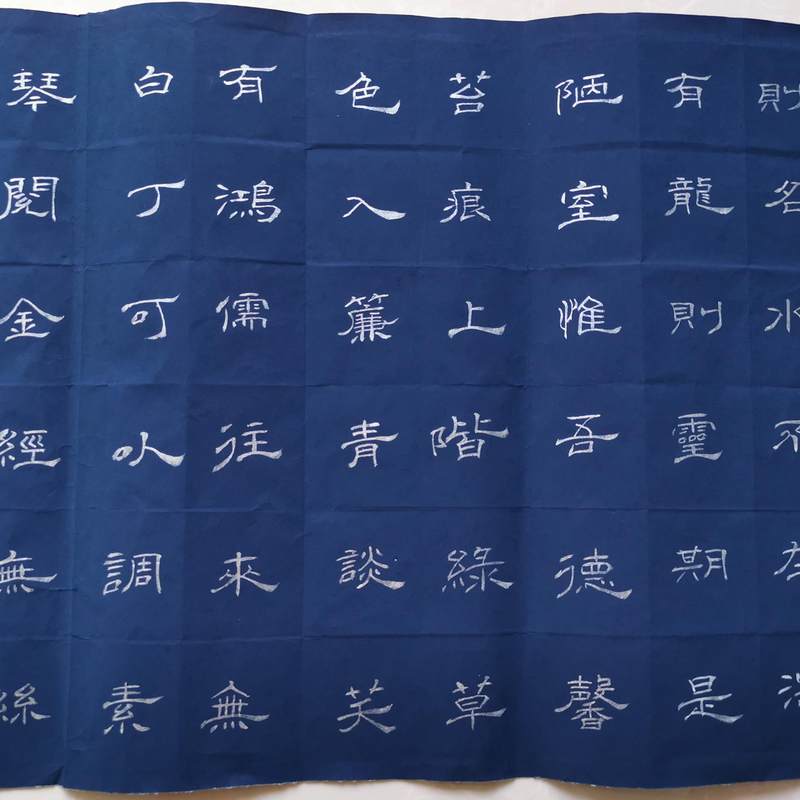 則名水不在深
有龍則靈期是
陋室惟吾德馨
苔痕上階綠草
色入簾青談笑
有鴻儒往來無
白丁可以調素
琴閱金經無絲